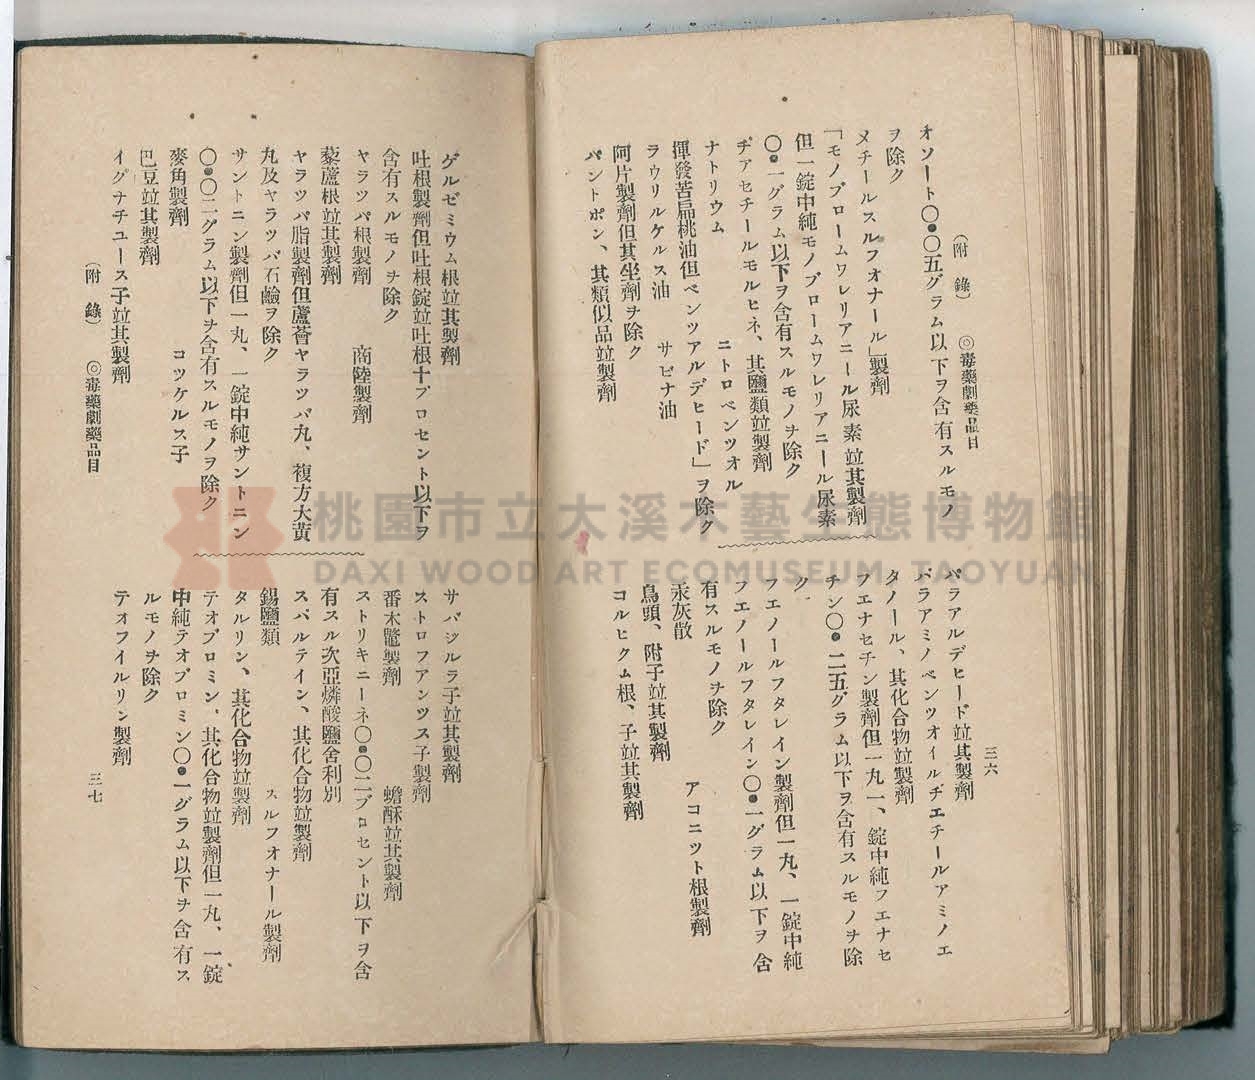 (附錄) ◎毒藥劇藥品目 三六
オソート〇・〇五グラム以下ヲ含有スルモノ
ヲ除ク
メチールスルフオナール」製劑
「モノブロームワレリアニール尿素竝其製劑
但一錠中純モノブロームワレリアニール尿素
〇・一グラム以下ヲ含有スルモノヲ除ク
ヂアセチールモルヒネ、其鹽類竝製劑
ナトリウム ニトロベンツオル
揮發苦扁桃油但ベンツアルデヒード」ヲ除ク
ラウリルケルス油 サビナ油
阿片製劑但其坐劑ヲ除ク
パントポン、其類似品竝製劑
パラアルデヒード竝其製劑
パラアミノベンツオイルヂエチールアミノエ
タノール、其化合物竝製劑
フエナセチン製劑但一丸一、錠中純フエナセ
チン〇・二五グラム以下ヲ含有スルモノヲ除
ク
フエノールフタレイン製劑但一丸、一錠中純
フエノールフタレイン〇・一グラム以下ヲ含
有スルモノヲ除ク
汞灰散 アコニツト根製劑
烏頭、附子竝其製劑
コルヒクム根、子竝其製劑
ゲルゼミウム根竝其製劑
吐根製劑但吐根錠竝吐根十プロセント以下ヲ
含有スルモノヲ除ク
ヤラツパ根製劑 商陸製劑
藜蘆根竝其製劑
ヤラツパ脂製劑但蘆薈ヤラツパ丸、複方大黃
丸及ヤラツパ石鹼ヲ除ク
サントニン製劑但一丸、一錠中純サントニン
〇・〇二グラム以下ヲ含有スルモノヲ除ク
麥角製劑 コツケルス子
巴豆竝其製劑
イグナチユース子竝其製劑
サバジルラ子竝其製劑
ストロフアンツス子製劑
番木鼈製劑 蟾酥竝其製劑
ストリキニーネ〇・〇二プロセント以下ヲ含
有スル次亞燐酸鹽舍利別
スパルテイン、其化合物竝製劑
錫鹽類 スルフオナール製劑
タルリン、其化合物竝製劑
テオブロミン、其化合物竝製劑但一丸、一錠
中純テオブロミン〇・一グラム以下ヲ含有ス
ルモノヲ除ク
テオフイルリン製劑
(附錄) ◎毒藥劇藥品目 三七
桃園市立大溪木藝生態博物館
DAXI WOOD ART ECOMUSEUM, TAOYUAN